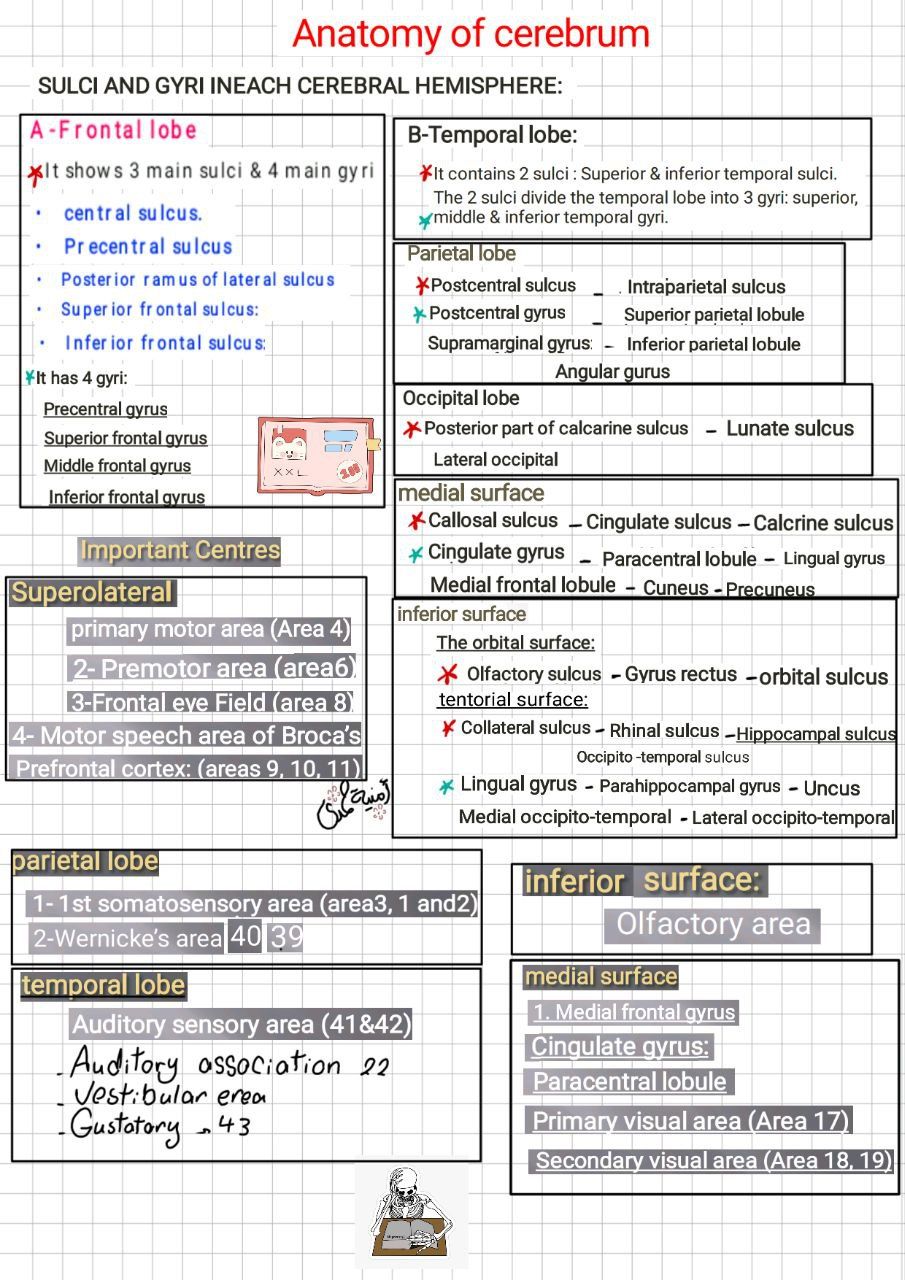 Anatomy of cerebrum
SULCI AND GYRI INEACH CEREBRAL HEMISPHERE:
A -Frontal lobe
It shows 3 main sulci & 4 main gyri
• central sulcus.
• Precentral sulcus
• Posterior ramus of lateral sulcus
• Superior frontal sulcus:
• Inferior frontal sulcus:
It has 4 gyri:
Precentral gyrus
Superior frontal gyrus
Middle frontal gyrus
Inferior frontal gyrus
B-Temporal lobe:
It contains 2 sulci : Superior & inferior temporal sulci.
The 2 sulci divide the temporal lobe into 3 gyri: superior,
middle & inferior temporal gyri.
Parietal lobe
Postcentral sulcus – Intraparietal sulcus
Postcentral gyrus – Superior parietal lobule
Supramarginal gyrus: – Inferior parietal lobule
Angular gurus
Occipital lobe
Posterior part of calcarine sulcus – Lunate sulcus
Lateral occipital
medial surface
Callosal sulcus – Cingulate sulcus – Calcrine sulcus
Cingulate gyrus – Paracentral lobule – Lingual gyrus
Medial frontal lobule – Cuneus - Precuneus
inferior surface
The orbital surface:
Olfactory sulcus - Gyrus rectus -orbital sulcus
tentorial surface:
Collateral sulcus - Rhinal sulcus -Hippocampal sulcus
Occipito -temporal sulcus
Lingual gyrus - Parahippocampal gyrus - Uncus
Medial occipito-temporal - Lateral occipito-temporal
Important Centres
Superolateral
primary motor area (Area 4)
2- Premotor area (area6)
3-Frontal eye Field (area 8)
4- Motor speech area of Broca’s
Prefrontal cortex: (areas 9, 10, 11)
parietal lobe
1- 1st somatosensory area (area3, 1 and2)
2-Wernicke’s area 40 39
temporal lobe
Auditory sensory area (41&42)
- Auditory association 22
- Vestibular erea
- Gustatory 43
inferior surface:
Olfactory area
medial surface
1. Medial frontal gyrus
Cingulate gyrus:
Paracentral lobule
Primary visual area (Area 17)
Secondary visual area (Area 18, 19)